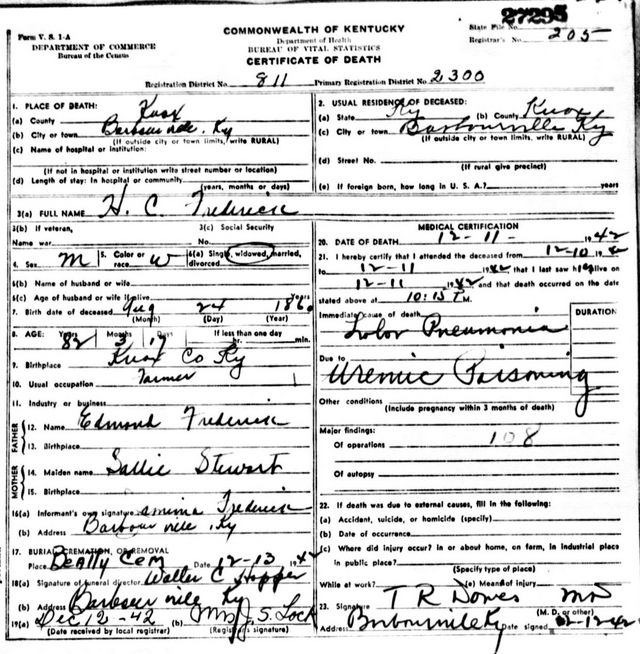 27295
Form V. S. 1-A
DEPARTMENT OF COMMERCE
Bureau of the Census
COMMONWEALTH OF KENTUCKY
Department of Health
BUREAU OF VITAL STATISTICS
CERTIFICATE OF DEATH
State File No.
Registrar's No. 205
Registration District No. 811 Primary Registration District No. 2300
1. PLACE OF DEATH:
(a) County Knox
(b) City or town Barbourville, Ky
(If outside city or town limits, write RURAL)
(c) Name of hospital or institution:
(If not in hospital or institution write street number or location)
(d) Length of stay: In hospital or community
(years, months or days)
2. USUAL RESIDENCE OF DECEASED:
(a) State Ky (b) County Knox
(c) City or town Barbourville Ky
(If outside city or town limits, write RURAL)
(d) Street No.
(If rural give precinct)
(e) If foreign born, how long in U. S. A.? years
3(a) FULL NAME H. C. Frederick
3(b) If veteran, Name war
3(c) Social Security No.
4. Sex M 5. Color or race W 6(a) Single, widowed, married, divorced
6(b) Name of husband or wife
6(c) Age of husband or wife if alive years
7. Birth date of deceased Aug 24 1860
(Month) (Day) (Year)
8. AGE: Years Months Days If less than one day
82 3 17 hr. min.
9. Birthplace Knox Co Ky
10. Usual occupation Farmer
11. Industry or business
FATHER
12. Name Edmond Frederick
13. Birthplace
MOTHER
14. Maiden name Sallie Stewart
15. Birthplace
16(a) Informant's own signature Frederick
(b) Address Barbourville, Ky
17. BURIAL, CREMATION, OR REMOVAL
Place Cem Date 12-13 1942
18(a) Signature of funeral director Walter C Hopper
(b) Address Barbourville Ky
19(a) Dec 12-42 (b) Mrs J. S. Lock
(Date received by local registrar) (Registrar's signature)
MEDICAL CERTIFICATION
20. DATE OF DEATH 12-11- 1942
21. I hereby certify that I attended the deceased from 12-10 1942
to 12-11 1942 that I last saw him alive on
12-11 1942 and that death occurred on the date
stated above at 10:15 M.
Immediate cause of death DURATION
Lobor Pneumonia
Due to
Uremic Poisoning
Other conditions
(Include pregnancy within 3 months of death)
Major findings: 108
Of operations
Of autopsy
22. If death was due to external causes, fill in the following:
(a) Accident, suicide, or homicide (specify)
(b) Date of occurrence
(c) Where did injury occur? in or about home, on farm, in industrial place
in public place?
(Specify type of place)
While at work? (e) Means of injury
23. Signature T R Dowes MD
(M. D. or other)
Address Barbourville Ky Date signed 12-12-42